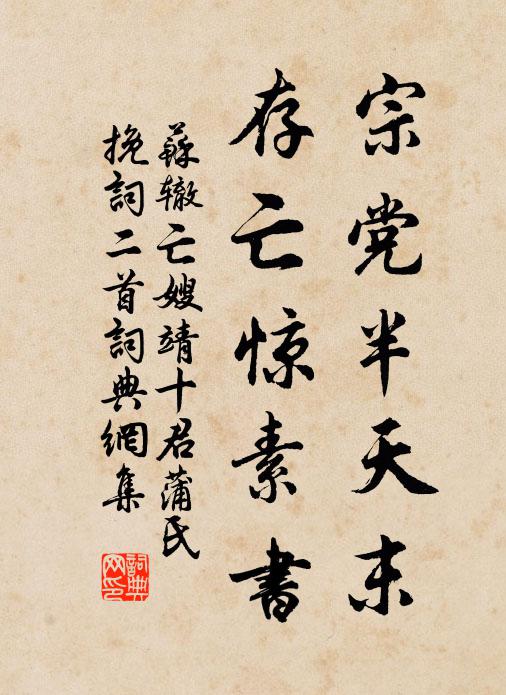 宗党半天末
存亡惊素書
蘇辙亡嫂靖十君蒲氏
挽詞二首詞典網集
詞典网印